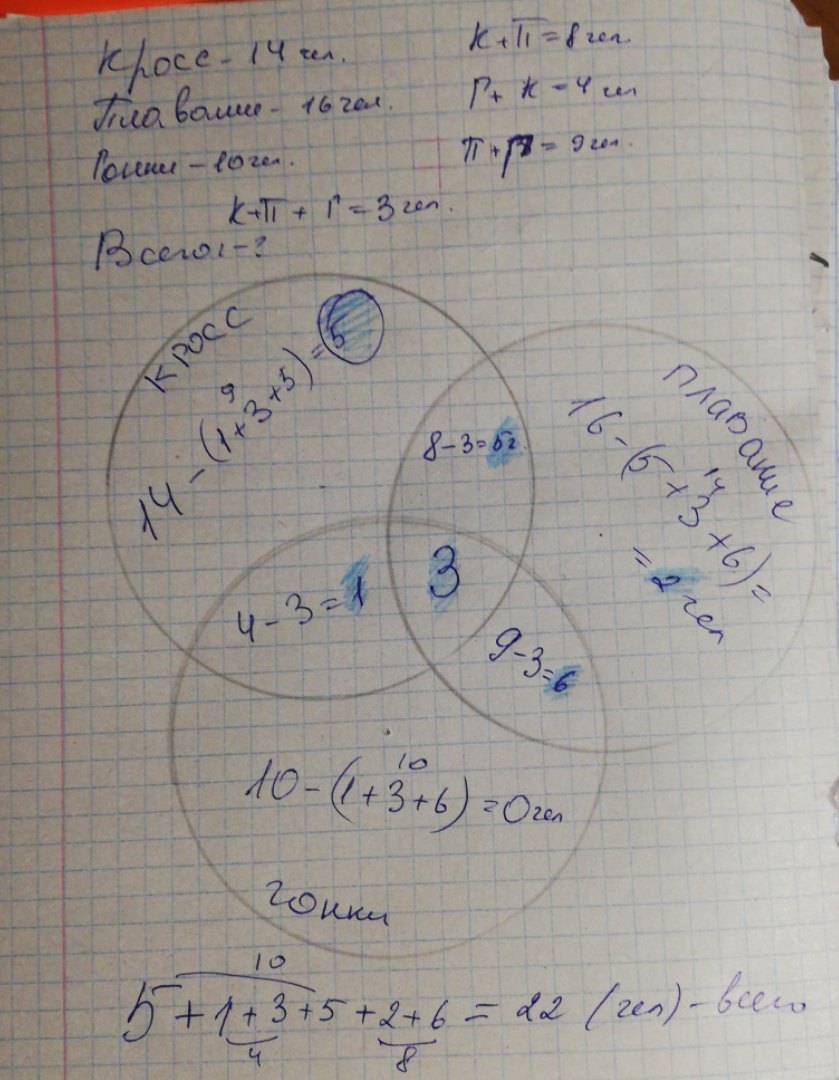 Кросс - 14 чел.
К+П = 8 чел.
Плавание - 16 чел.
Г+ К = 4 чел
Гонки - 10 чел.
П+Г = 9 чел.
К+П + Г = 3 чел.
Всего - ?
кросс
14 - (1+3+5) = 5
9
плавание
16 - (5+3+6) =
14
= 2 чел
8-3=5
4-3=1
3
9-3=6
10
10-(1+3+6) = 0 чел
гонки
10
5+1+3+5+2+6 = 22 (чел) - всего
4 8